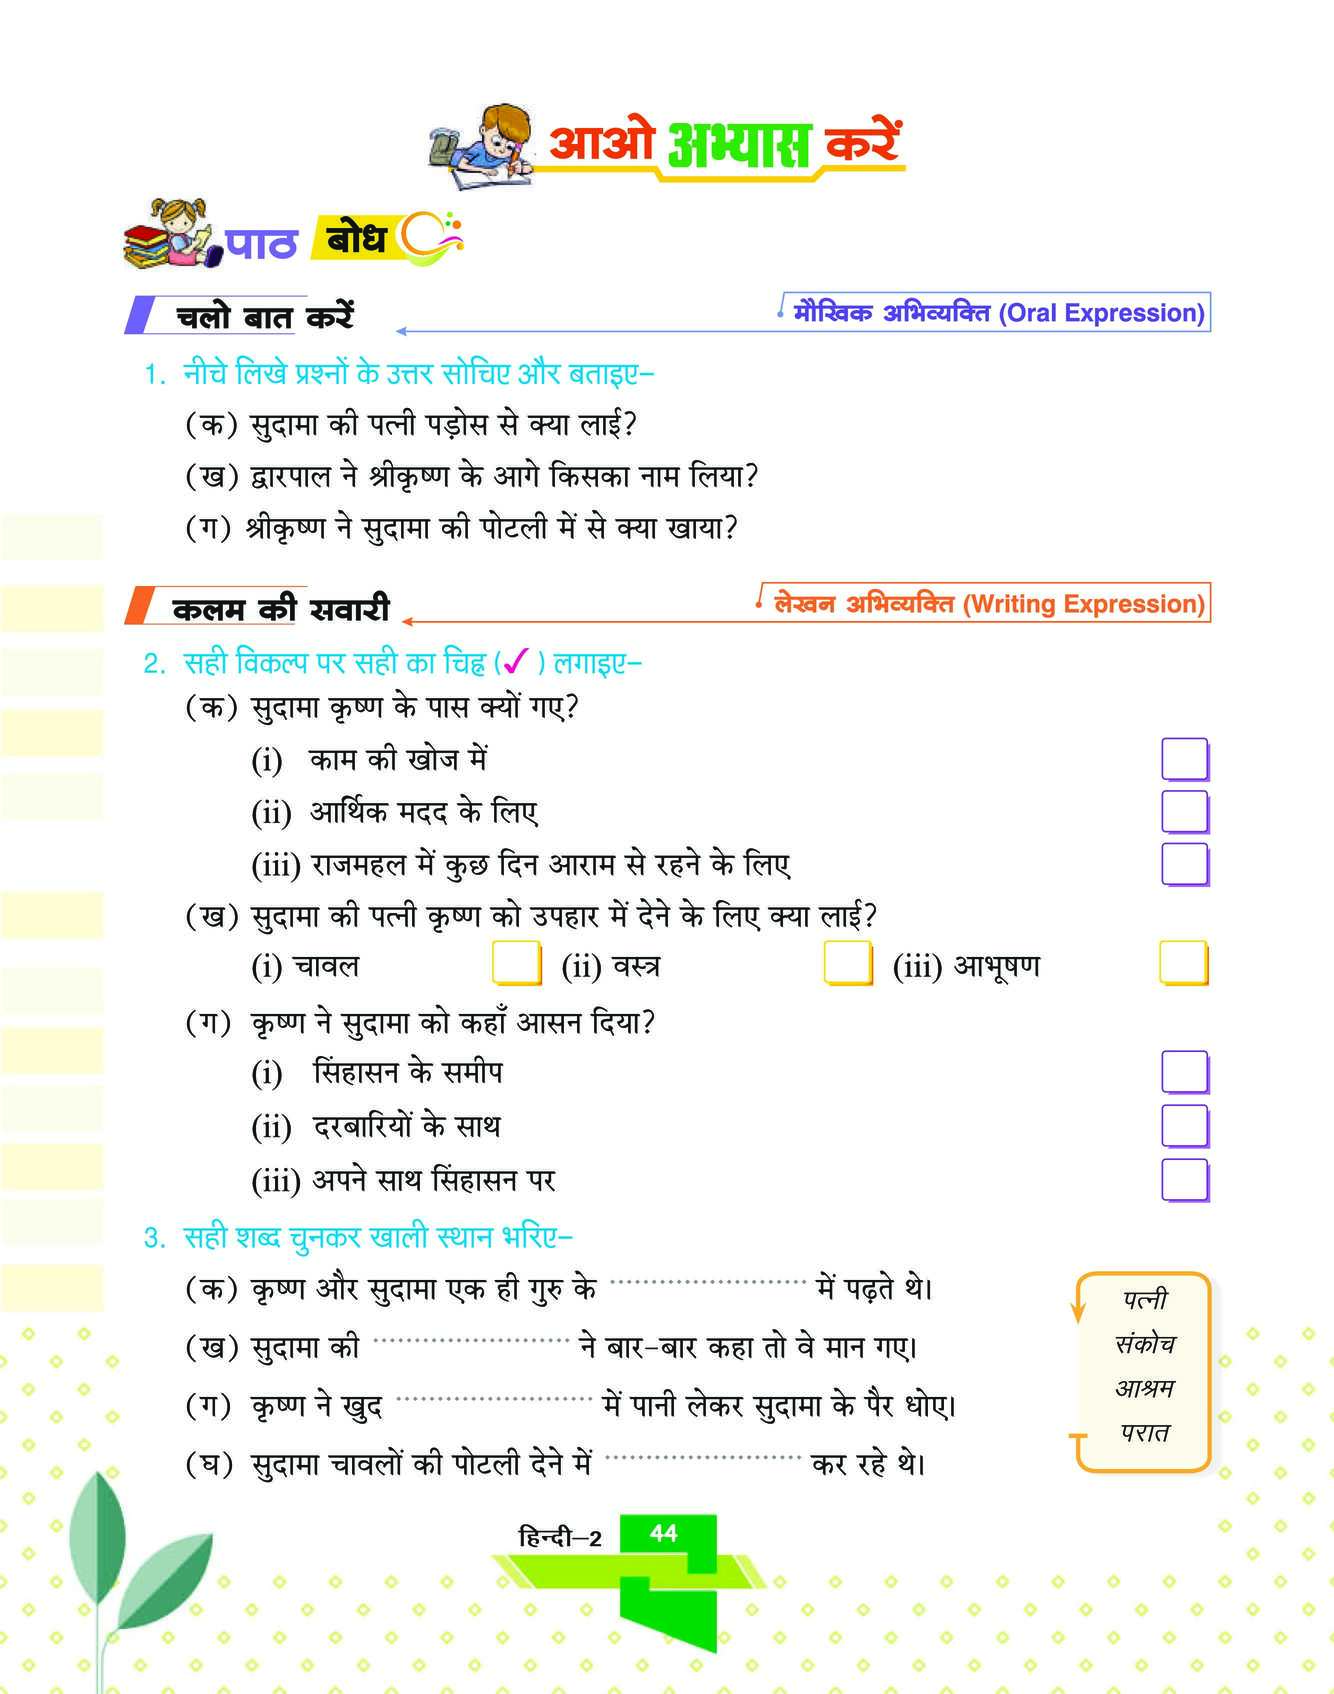 आओ अभ्यास करें
पाठ बोध
चलो बात करें
मौखिक अभिव्यक्ति (Oral Expression)
1. नीचे लिखे प्रश्नों के उत्तर सोचिए और बताइए–
(क) सुदामा की पत्नी पड़ोस से क्या लाई?
(ख) द्वारपाल ने श्रीकृष्ण के आगे किसका नाम लिया?
(ग) श्रीकृष्ण ने सुदामा की पोटली में से क्या खाया?
कलम की सवारी
लेखन अभिव्यक्ति (Writing Expression)
2. सही विकल्प पर सही का चिह्न (✓) लगाइए–
(क) सुदामा कृष्ण के पास क्यों गए?
(i) काम की खोज में
(ii) आर्थिक मदद के लिए
(iii) राजमहल में कुछ दिन आराम से रहने के लिए
(ख) सुदामा की पत्नी कृष्ण को उपहार में देने के लिए क्या लाई?
(i) चावल (ii) वस्त्र (iii) आभूषण
(ग) कृष्ण ने सुदामा को कहाँ आसन दिया?
(i) सिंहासन के समीप
(ii) दरबारियों के साथ
(iii) अपने साथ सिंहासन पर
3. सही शब्द चुनकर खाली स्थान भरिए–
(क) कृष्ण और सुदामा एक ही गुरु के ........................ में पढ़ते थे।
(ख) सुदामा की ........................ ने बार-बार कहा तो वे मान गए।
(ग) कृष्ण ने खुद ........................ में पानी लेकर सुदामा के पैर धोए।
(घ) सुदामा चावलों की पोटली देने में ........................ कर रहे थे।
पत्नी
संकोच
आश्रम
परात
हिन्दी–2 44